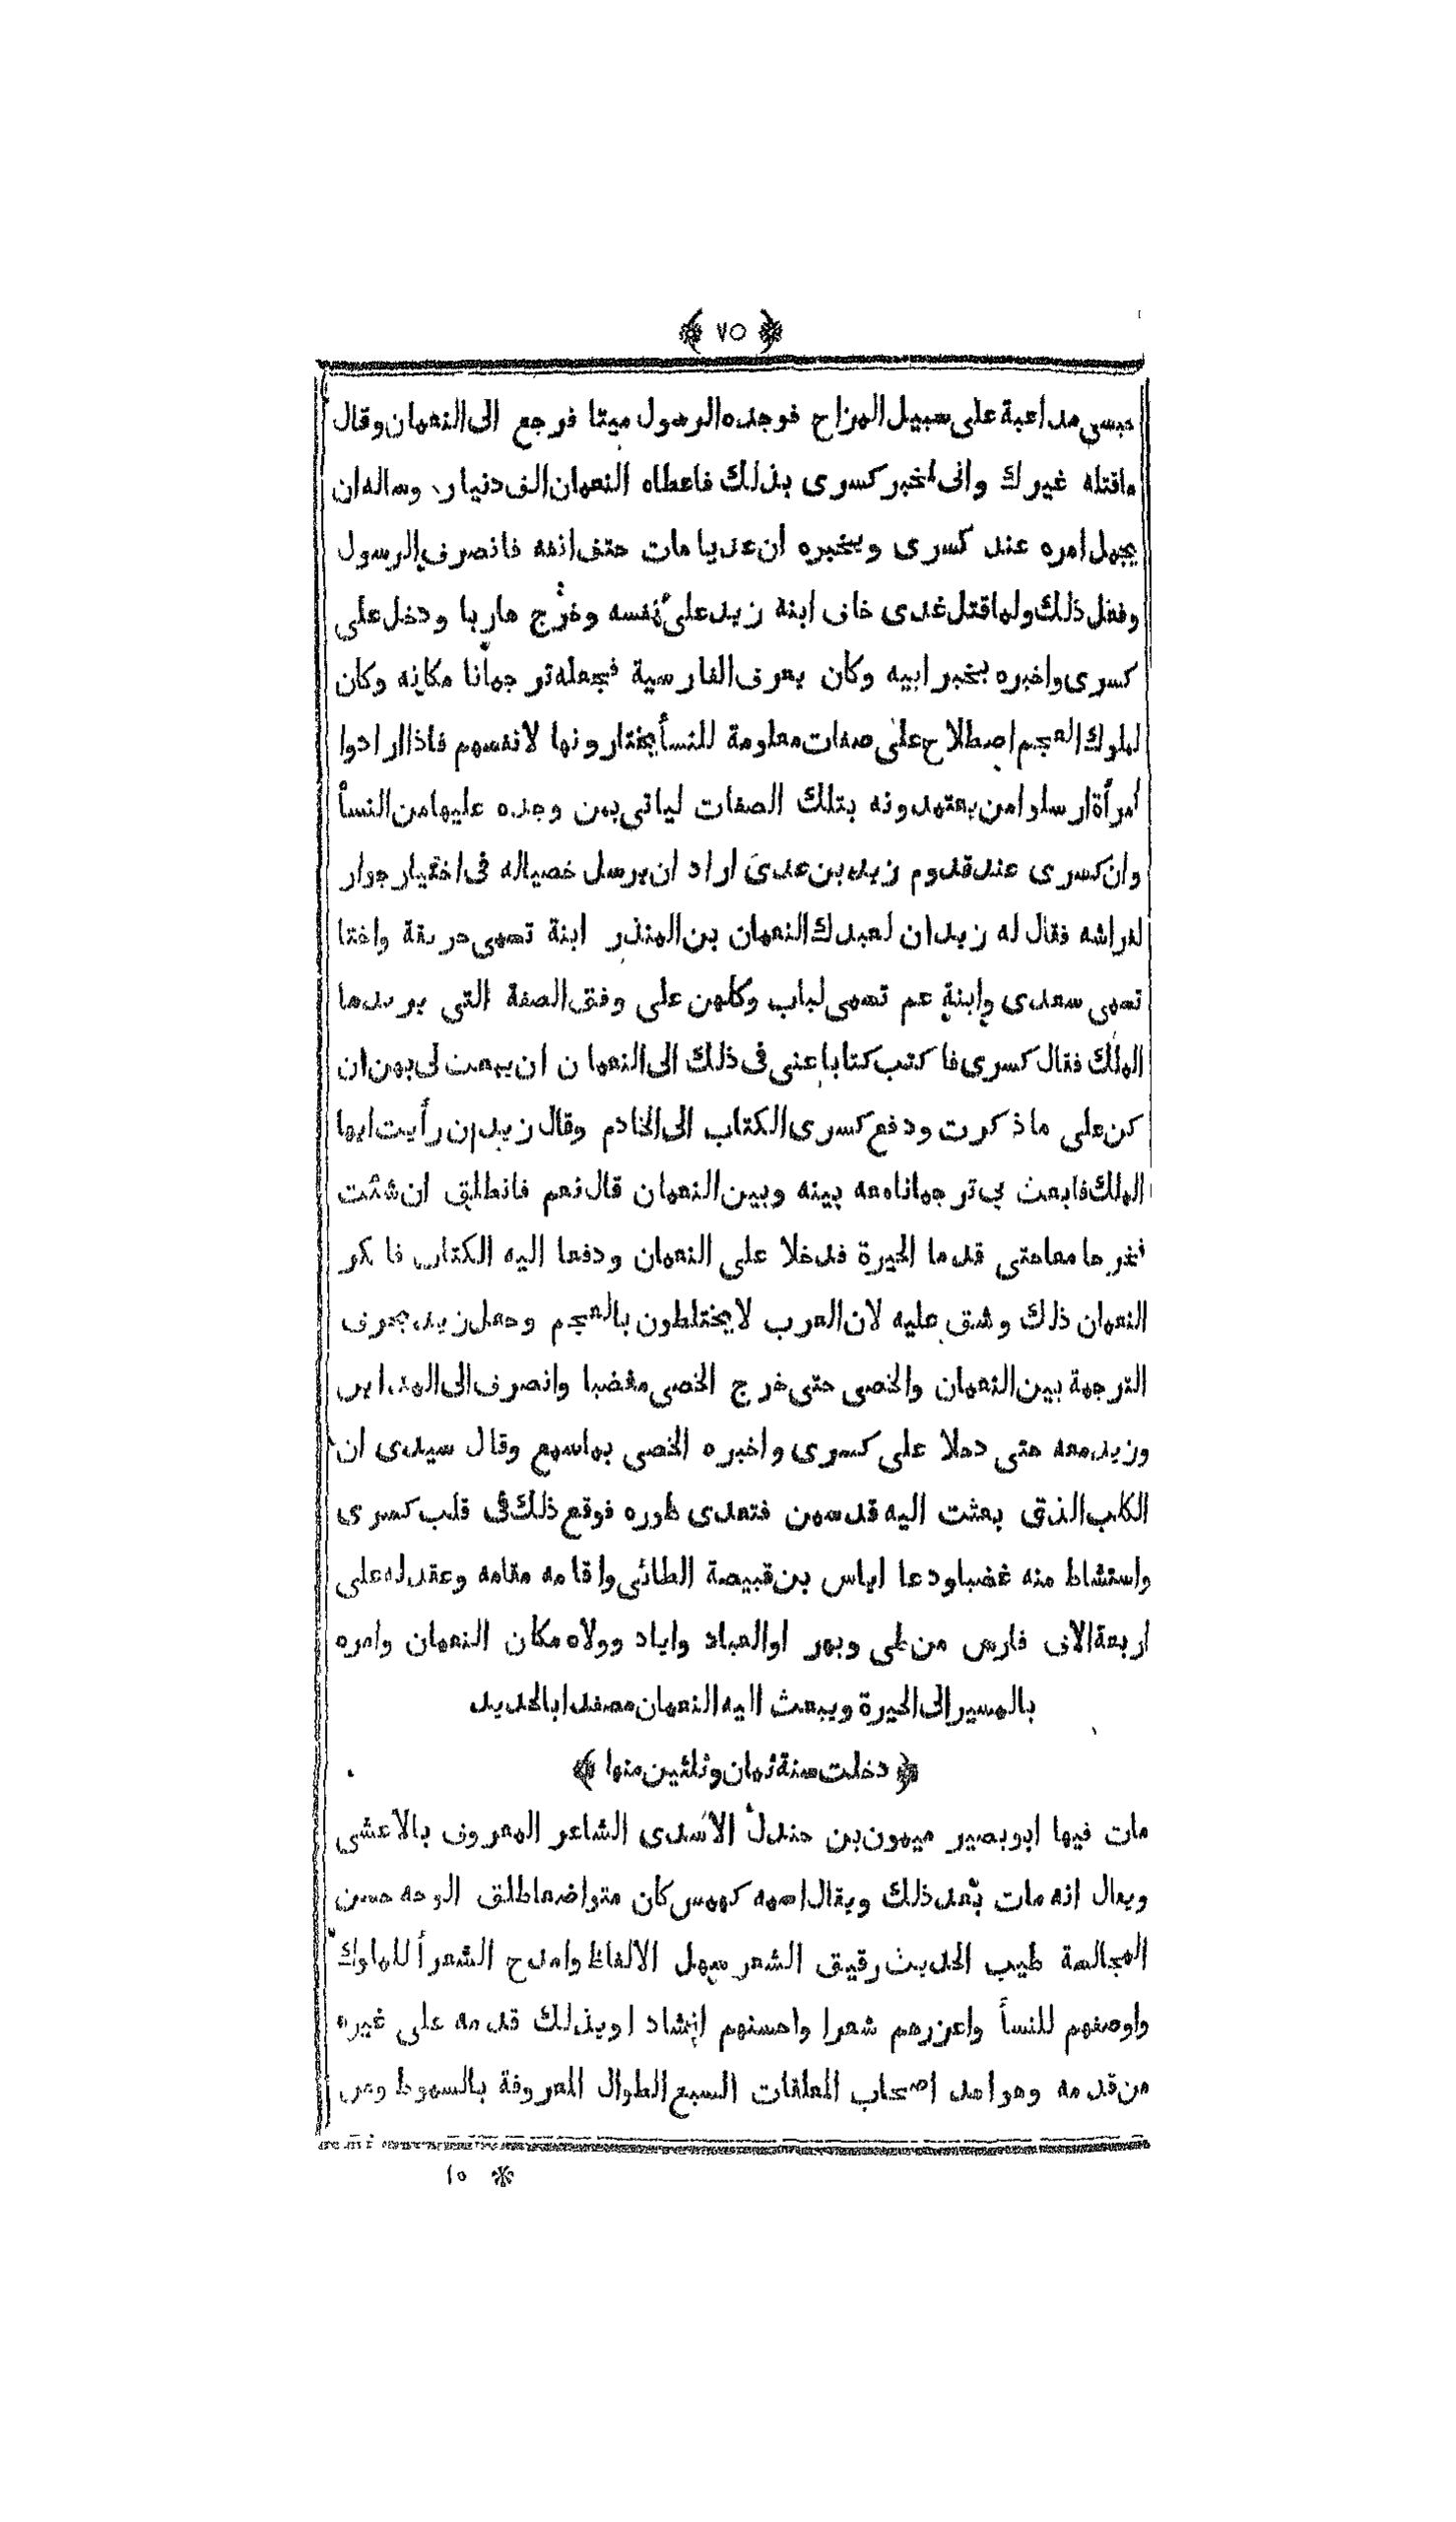 ﴿ ٧٥ ﴾
حبسى مداعبة على سبيل المزاح فوجده الرسول ميتا فرجع الى النعمان وقال
ماقتله غيرك وانى لمخبر كسرى بذلك فاعطاه النعمان الف دنيار وساله ان
يجمل امره عند كسرى ويخبره ان عديا مات حتف انفه فانصرف الرسول
وفعل ذلك ولما قتل غدى خاف ابنة زيد على نفسه وخرج هاربا ودخل على
كسرى واخبره بخبر ابيه وكان يعرف الفارسية فجعله ترجمانا مكانه وكان
لملوك العجم اصطلاح على صفات معلومة للنسأ يختارونها لانفسهم فاذا ارادوا
امرأة ارسلوا من يعتمدونه بتلك الصفات لياتى بمن وجده عليها من النسأ
وان كسرى عند قدوم زيد بن عدى اراد ان يرسل خصياله فى اختيار جوار
لفراشه فقال له زيد ان لعبدك النعمان بن المنذر ابنة تسمى حريقة واختا
تسمى سعدى وابنة عم تسمى لباب وكلهن على وفق الصفة التى يريدها
الملك فقال كسرى فاكتب كتابا عنى فى ذلك الى النعمان ان يبعث لى بهن ان
كن على ماذكرت ودفع كسرى الكتاب الى الخادم وقال زيد ان رأيت ايها
الملك فابعث بي ترجمانا معه بينه وبين النعمان قال نعم فانطلق ان شئت
فخرجا معاحتى قدما الحيرة فدخلا على النعمان ودفعا اليه الكتاب فاكر
النعمان ذلك وشق عليه لان العرب لايختلطون بالعجم وجعل زيد يحرف
الترجمة بين النعمان والخصى حتى خرج الخصى مغضبا وانصرف الى المداين
وزيد معه حتى دخلا على كسرى واخبره الخصى بماسمع وقال سيدى ان
الكلب الذى بعثت اليه قد سمن فتعدى طوره فوقع ذلك فى قلب كسرى
واستشاط منه غضبا ودعا اياس بن قبيصة الطائى واقامه مقامه وعقد له على
اربعة الاف فارس من طى وبهر اوالعباد واياد وولاه مكان النعمان وامره
بالمسير الى الحيرة ويبعث اليه النعمان مصفدا بالحديد
﴿ دخلت سنة ثمان وثلثين منها ﴾
مات فيها ابوبصير ميمون بن جندل الاسدى الشاعر المعروف بالاعشى
ويقال انه مات بعد ذلك ويقال اسمه كهمس كان متواضعا طلق الوجه حسن
المجالسة طيب الحديث رقيق الشعر سهل الالفاظ وامدح الشعرأ للملوك
واوصفهم للنسأ واعزرهم شعرا واحسنهم انشاد اوبذلك قدمه على غيره
من قدمه وهو احد اصحاب المعلقات السبع الطوال المعروفة بالسموط ومن
* ١٥